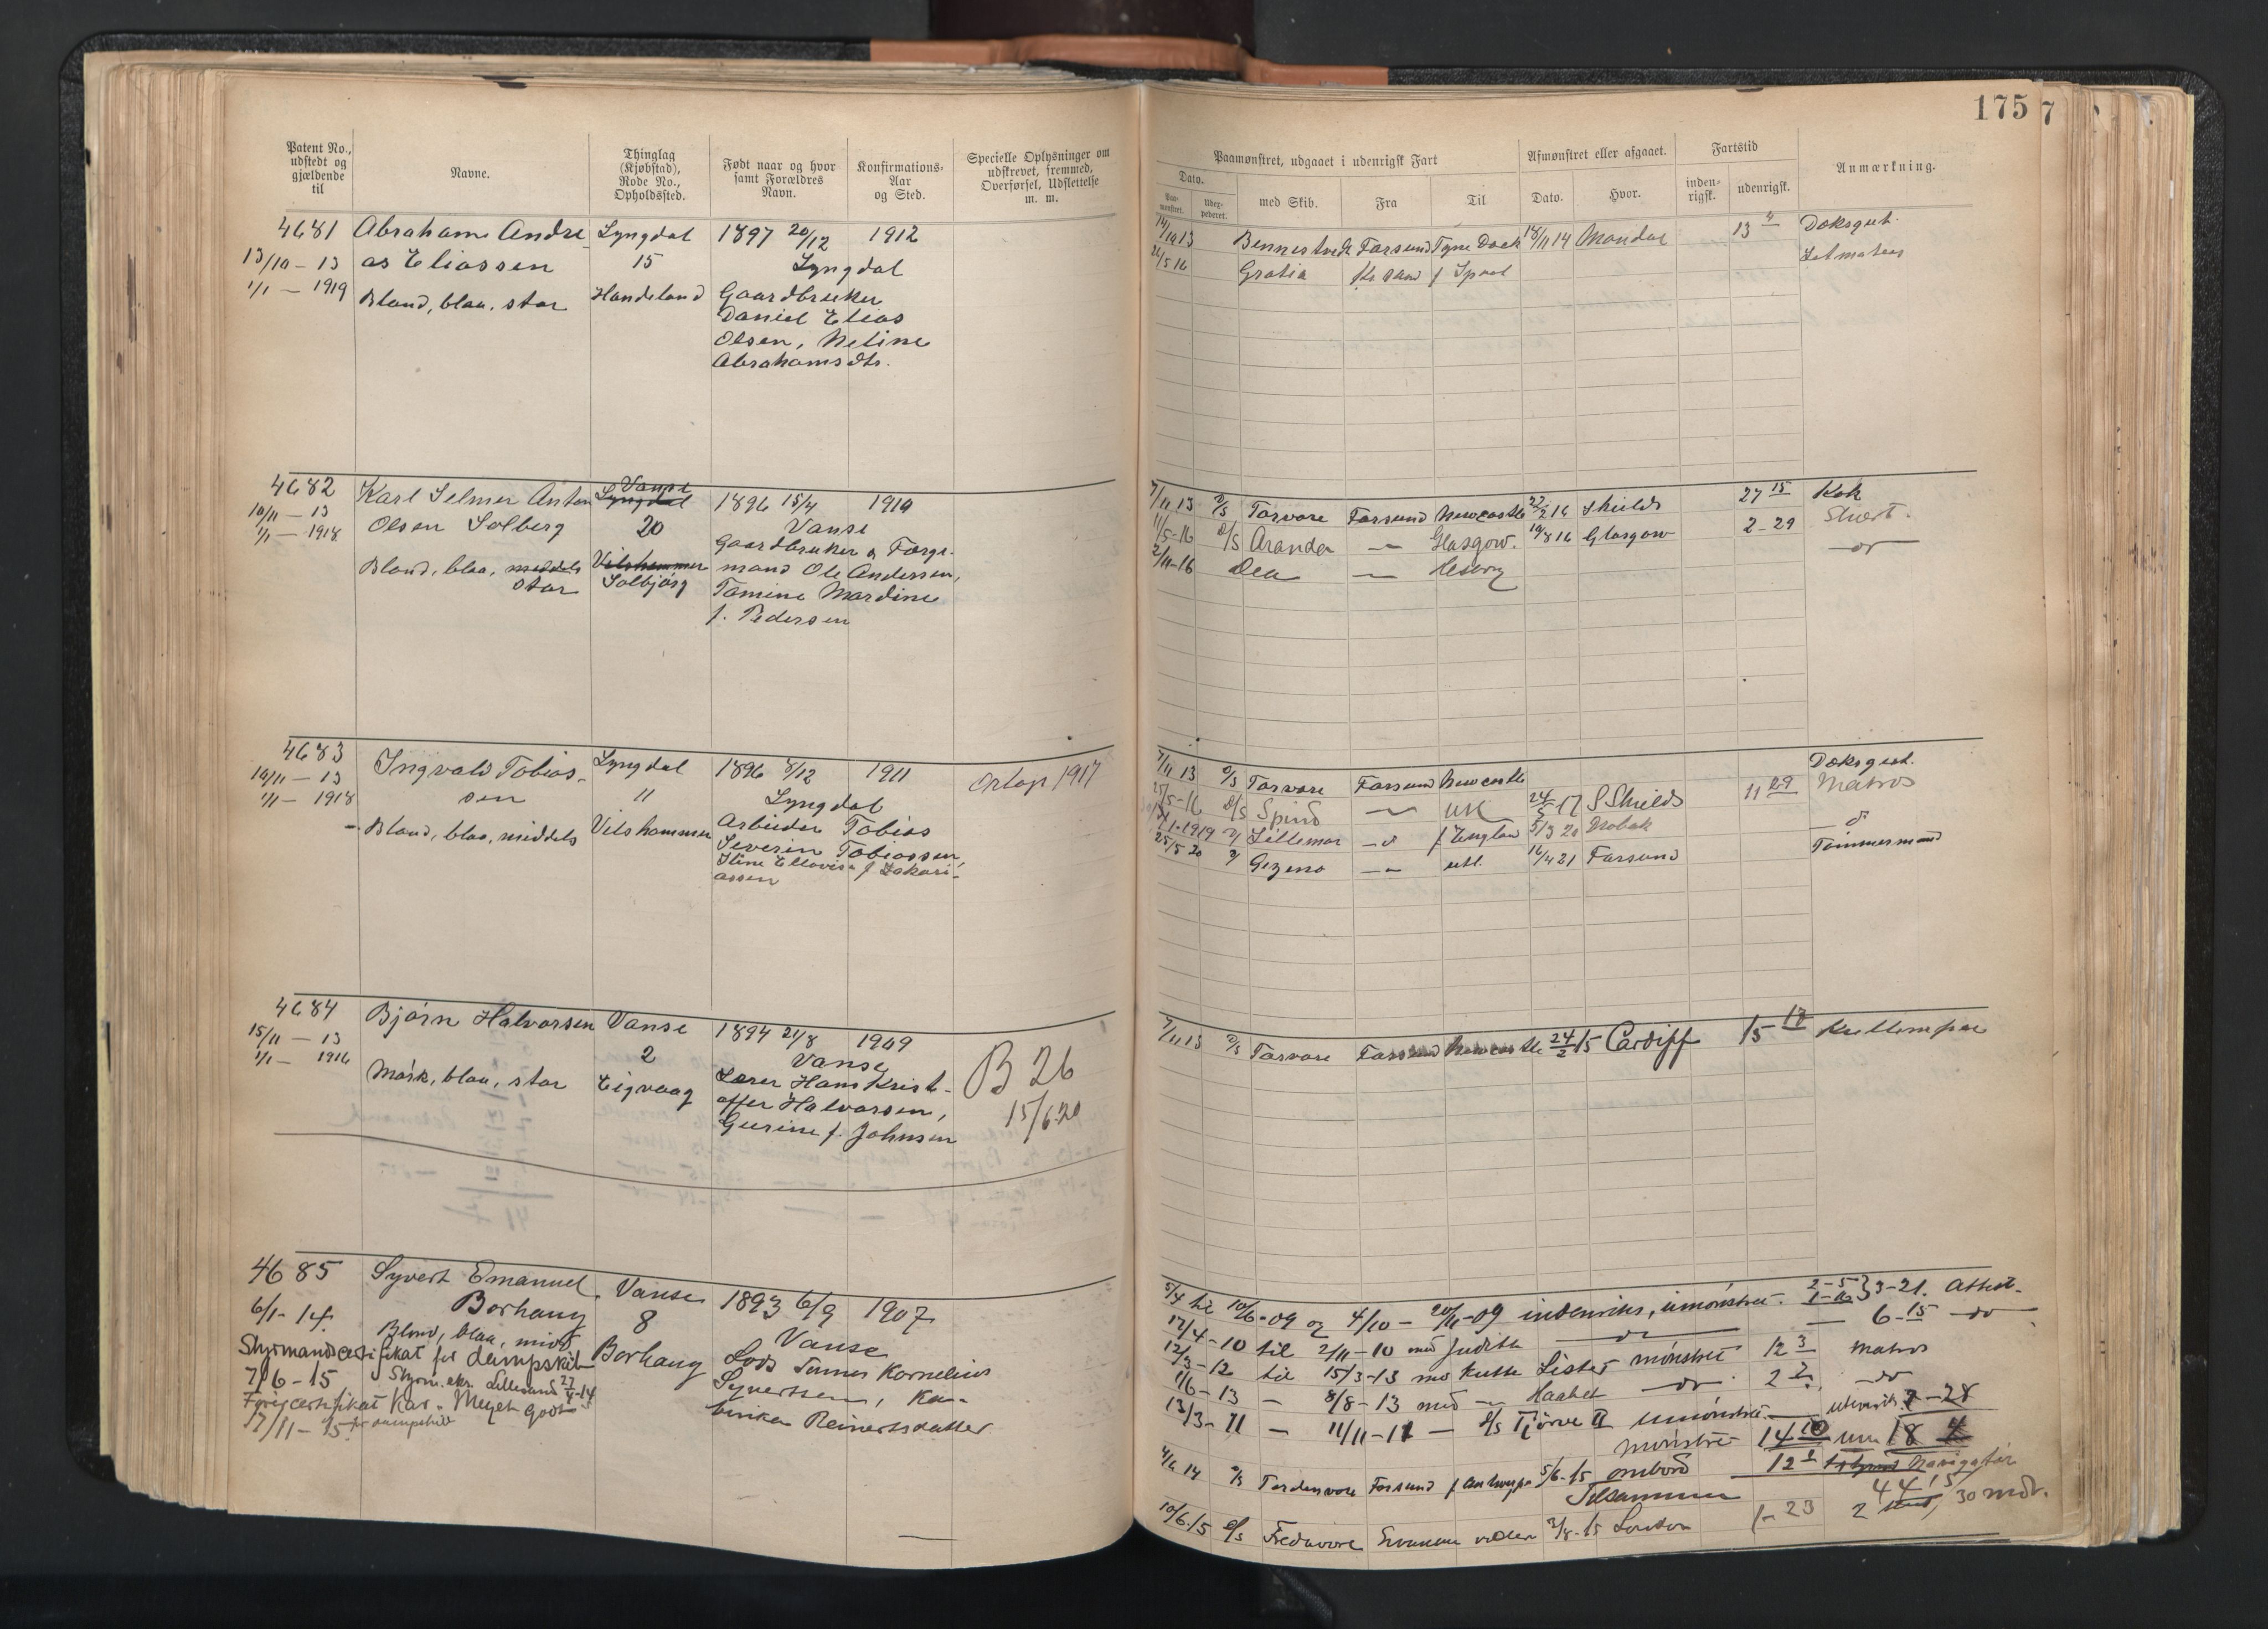 175
7
Patent No., udstedt og gjældende til
Navne.
Thinglag (Kjøbstad), Rode No., Opholdssted.
Født naar og hvor samt Forældres Navn.
Konfirmations-Aar og Sted.
Specielle Oplysninger om udskrevet, fremmed, Overførsel, Udslettelse m. m.
Paamønstret, udgaaet i udenrigsk Fart
Afmønstret eller afgaaet.
Fartstid
Anmærkning.
Dato.
Paamønstret.
Udexpederet.
med Skib.
Fra
Til
Dato.
Hvor.
indenrigsk.
udenrigsk.
4681 Abraham Andre- Lyngdal 1897 20/12 1912
13/10 — 13 as Eliassen 15 Lyngdal
1/1 — 1919 Blond, blaa, stor Handeland Gaardbruker
Daniel Elias
Olsen, Neline
Abrahamsdtr.
14/10 13 Bennestvedt Farsund Tyne Dock 18/11 14 Mandal 13 4 Dæksgut.
26/5 16 Gratia Kr sand f Spool Letmatros
4682 Karl Selmer Anton Vanse Lyngdal 1896 15/4 1910
10/11 — 13 Olsen Solberg 20 Vanse
1/1 — 1918 Gaardbruker & Færge-
Blond, blaa, middels Vilshammer mand Ole Andersen,
stor Solbjørg Tomine Mardine
f. Pedersen
7/11 13 D/S Torvore Farsund Newcastle 22/2 16 Shields 27 15 Kok
11/5-16 D/S Aranda — Glasgow. 19/8 16 Glasgow 2-29 Stuert.
2/11-16 Dea — do
4683 Ingvald Tobias- Lyngdal 1896 8/12 1911 Ortop 1917
10/11 — 13 sen 11 Lyngdal
1/1 — 1918 Blond, blaa, middels Vilshammer Arbeider Tobias
Severin Tobiassen,
f Zakari-
assen
7/11 13 D/S Torvore Farsund Newcastle Dæksgut.
25/5-16 D/S Spind — UK 24/5 17 S Shields 11 29 Matros
1-1919 Lillemor — d f England 5/3 20 Drøbak — d
25/5 20 Gezena — utl. 16/4 21 Farsund Tømmermand
4684 Bjørn Halvorsen Vanse 1894 21/8 1909
15/11 — 13 2 Vanse
1/1 — 1916 Mørk, blaa, stor Eigvaag Lærer Hans Krist-
offer Halvorsen,
Gurine f. Johnsen
B 26
15/6 20
7/11 13 D/S Torvore Farsund Newcastle 24/2 15 Cardiff 15 17 Kullemper
4685 Syvert Emanuel Vanse 1893 6/9 1907
6/1-14. Borhaug 8 Vanse
Blond, blaa, midd Borhaug Lods Tønnes Kornelius
Styrmandscertifikat for dampskib Syvertsen, Ka-
7/6-15 Styrm. eks. Lillesand 27/4-14 trine Reinertsdatter
Førigcertifikat Kar. Meget Godt
17/11-15 for dampskib
5/4 til 10/6-09 og 4/10 — 20/11-09 indenriks, umønstret. 2-5 1-16 } 3-21. Attest.
12/4-10 til 2/11-10 med Judith — do — 6-15 — do
12/3-12 til 15/3-13 med Kutte Lister mønstret 12 3 matros
1/6-13 — 8/8-13 med — Haabet — do 2 7 — do
13/3-11 — 11/11-11 — D/S Tjorve II umønstret — utenriks 7-28
mønstret 14 10 um 18 4
4/6 14 D/S Tordenvore Farsund f Antwerpen 5/6-15 ombord 12 1 Navigatør
Tilsammen 44 15
10/6-15 D/S Fredavore Svanene 2/8-15 London 1-23 2 styrm, 30 mdr.